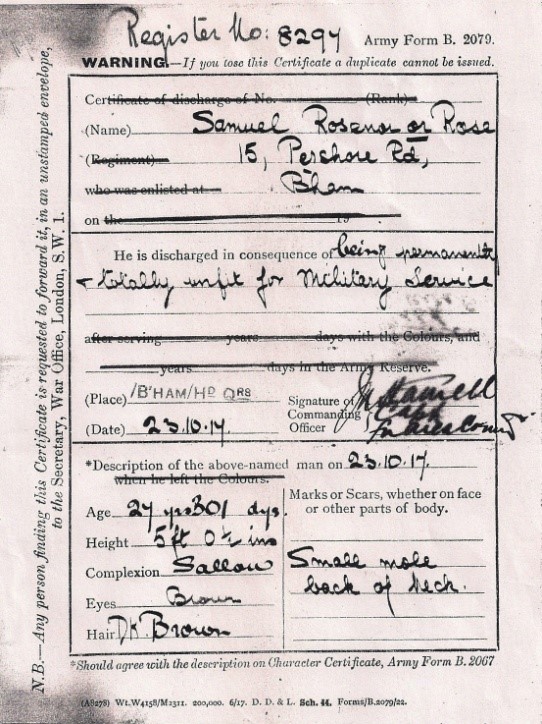 Register No: 8297 Army Form B. 2079.
WARNING.—If you lose this Certificate a duplicate cannot be issued.
Certificate of discharge of No. (Rank)
(Name) Samuel Rosenor or Rose
(Regiment) 15, Pershore Rd,
who was enlisted at B'ham
on the 19
He is discharged in consequence of being permanently
+ totally unfit for Military Service
after serving years days with the Colours, and
years days in the Army Reserve.
(Place) B'HAM/HD QRS
Signature of
Commanding
Officer
Capt
for Area Comdt
(Date) 23.10.17.
*Description of the above-named man on 23.10.17.
when he left the Colours.
Age 27 yrs 301 dys.
Height 5 ft 0½ ins
Complexion Sallow
Eyes Brown
Hair Dk Brown
Marks or Scars, whether on face
or other parts of body.
Small mole
back of neck.
*Should agree with the description on Character Certificate, Army Form B. 2067
(A8278) Wt.W4158/M2311. 200,000. 6/17. D. D. & L. Sch. 44. Forms/B.2079/22.
N.B.—Any person finding this Certificate is requested to forward it, in an unstamped envelope,
to the Secretary, War Office, London, S.W. 1.